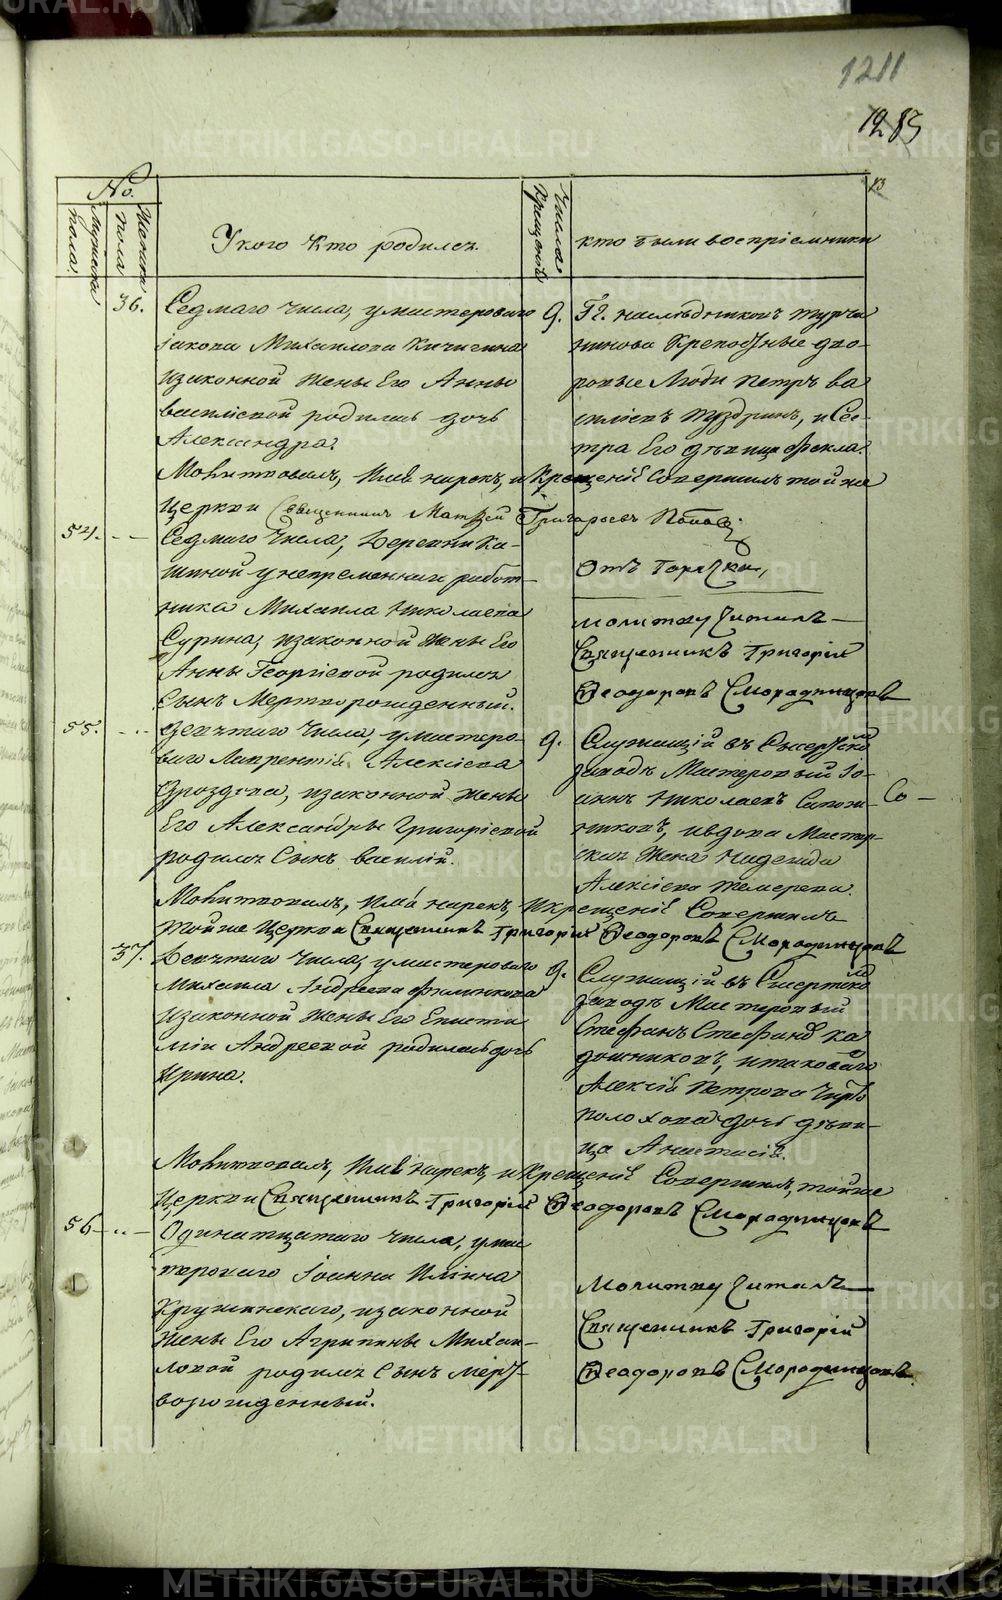 1211
1283
13
No.
Мужеска пола
Женска пола
У кого кто родился
Числа Крещенiя
кто были восприемники
36.
Седмаго числа, у мастероваго
Iакова Михаилова Кичигина
изаконной жены Его Анны
васильевой родилась дочь
Александра.
9.
Гг. наслѣдниковъ Турча
нинова Крепостные дво-
ровые Люди Петръ ва
сильевъ, и Сес-
тра Его дѣвица Фекла.
Молитвовалъ, имя нарекъ, и Крещенiе Совершилъ тойже
Церкви Священникъ Матѳей Григорьевъ Поповъ.
54.
Седмаго Числа, Деревни Ка-
шиной у непременнаго работ-
ника Михаила Николаева
Сурина, изаконной жены Его
Анны Георгiевой родился
Сынъ Мертворожденный.
молитву Читалъ
Священникъ Григорiй
Ѳеодоровъ Смородинцовъ
55.
Девятаго Числа, у мастеро-
ваго Лаврентiя Алексiева
Дроздова, изаконной жены
Его Александры Григорiевой
родился Сынъ василiй.
9.
Служащiй въ Сысертско
заводѣ Мастеровый Iо-
аннъ Николаевъ Сапож-
никовъ, ивдова Мастер-
ская жена Надежда
Алексiева Темерева.
Со
Молитвовалъ, Имя нарекъ, Икрещенiе Совершилъ
тойже Церкви Священникъ Григорiй Ѳеодоровъ Смородинцовъ
37.
Девятаго Числа, у мастероваго
Михаила Андреева Филинкова
изаконной жены Его Епистi
мiи Андреевой родилась дочь
Ирина.
9.
Служащiй въ Сысертско
заводѣ Мастеровый
Стефанъ Стефановъ Ка
дошниковъ, итаковаго
Алексiя Петрова
дочь дѣви-
ца Анастасiя.
Молитвовалъ, Имя нарекъ, и Крещенiе Совершилъ, тойже
Церкви Священникъ Григорiй Ѳеодоровъ Смородинцовъ
56
Одинатцатаго числа, у мас
тероваго Iоанна Илiина
Крушинскаго, изаконной
жены Его Агрипины Михаи-
ловой родился Сынъ мерт-
ворожденный.
Молитву Читалъ
Священникъ Григорiй
Ѳеодоровъ Смородинцовъ
METRIKI.GASO-URAL.RU